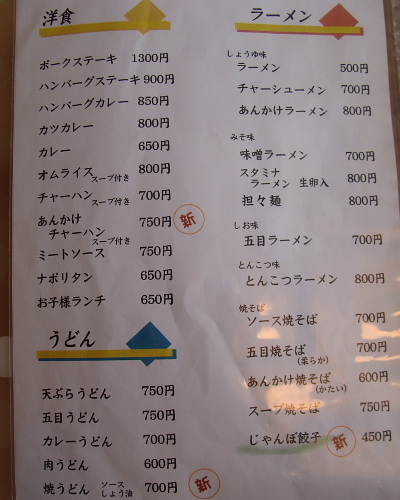 洋食
ポークステーキ 1300円
ハンバーグステーキ 900円
ハンバーグカレー 850円
カツカレー 800円
カレー 650円
オムライス スープ付き 800円
チャーハン スープ付き 700円
あんかけ
チャーハン スープ付き 750円 新
ミートソース 750円
ナポリタン 650円
お子様ランチ 650円
うどん
天ぷらうどん 750円
五目うどん 750円
カレーうどん 700円
肉うどん 600円
焼うどん ソース しょう油 700円 新
ラーメン
しょうゆ味
ラーメン 500円
チャーシューメン 700円
あんかけラーメン 800円
みそ味
味噌ラーメン 700円
スタミナ
ラーメン 生卵入 800円
担々麺 800円
しお味
五目ラーメン 700円
とんこつ味
とんこつラーメン 800円
焼そば
ソース焼そば 700円
五目焼そば 700円
(柔らか)
あんかけ焼そば 600円
(かたい)
スープ焼そば 750円
じゃんぼ餃子 新 450円